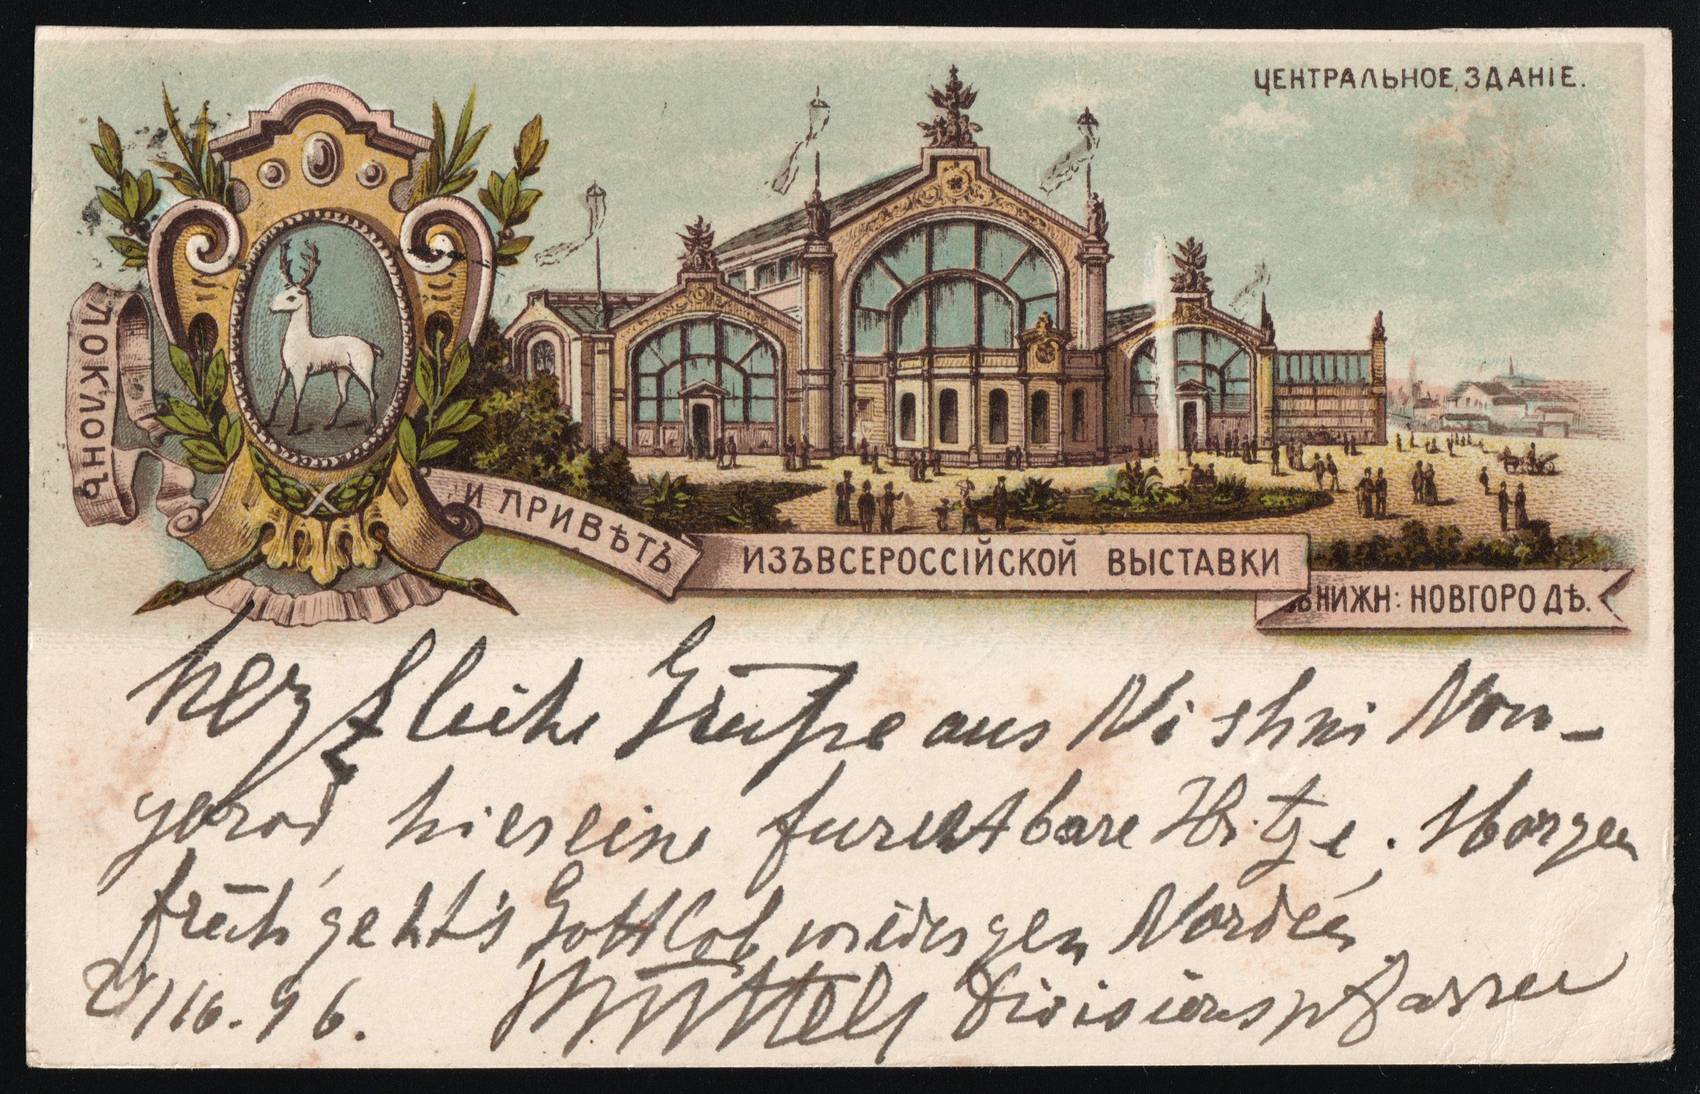 ЦЕНТРАЛЬНОЕ ЗДАНІЕ.
ПОКЛОНЪ
И ПРИВѢТЪ
ИЗЪ ВСЕРОССІЙСКОЙ ВЫСТАВКИ
ВЪ НИЖН: НОВГОРОДѢ.
herzliche Grüße aus Nishni Now-
gorod hier eine furchtbare Hitze. Morgen
früh geht's Gottlob wieder gen Norden
96. Divisionspfarrer